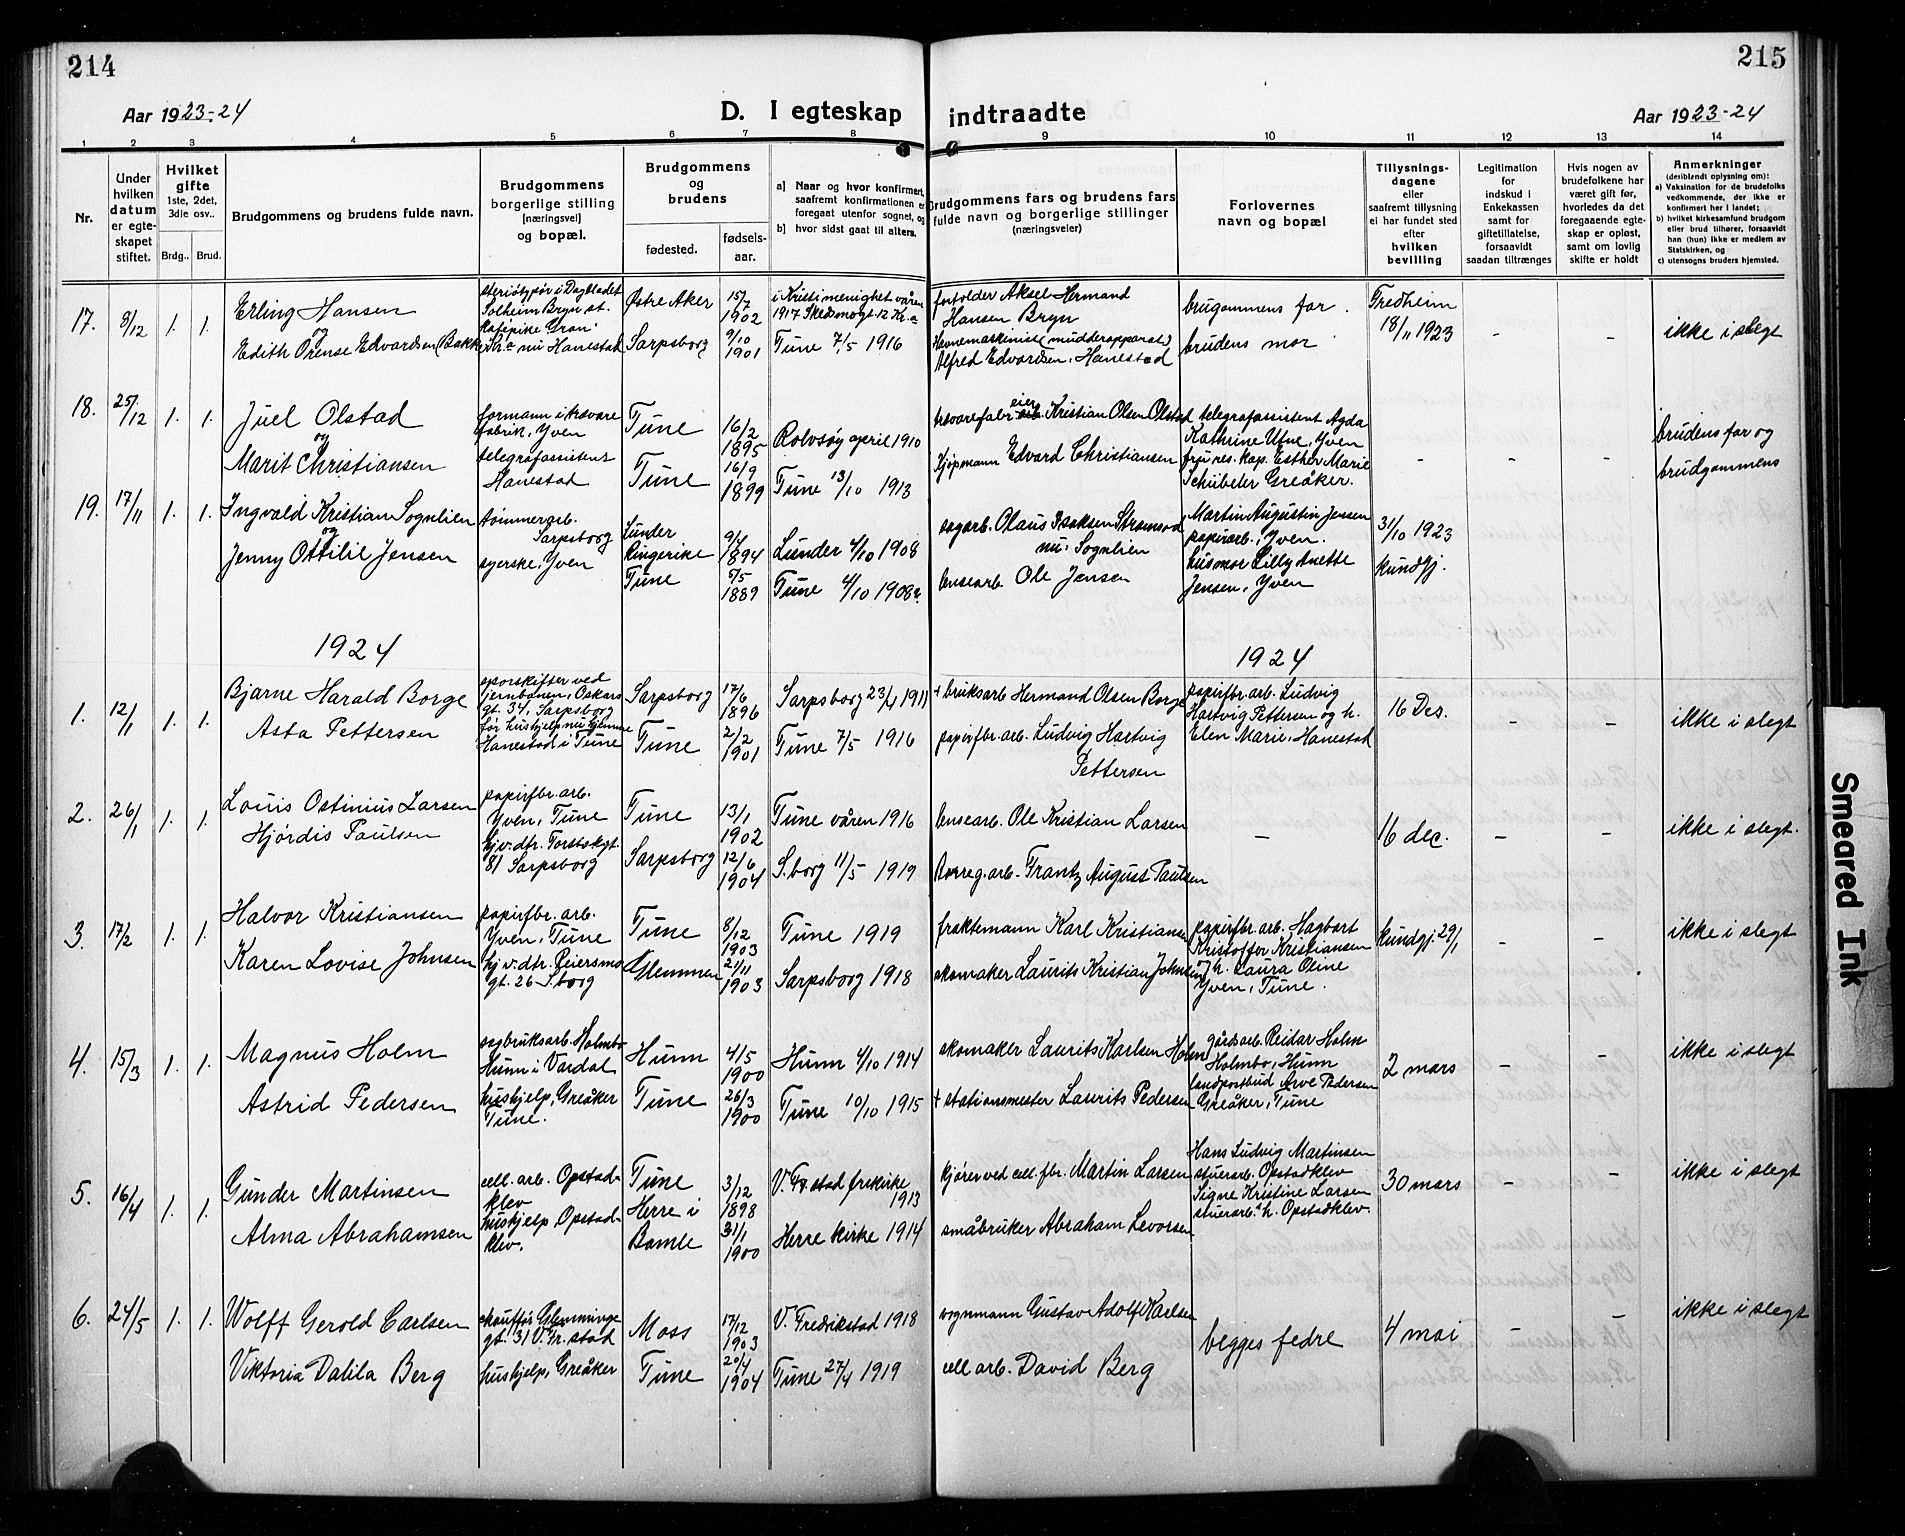 214
215
Aar 1923-24
D. I egteskap indtraadte
Aar 1923-24
1 2 3 4 5 6 7 8 9 10 11 12 13 14
Nr.
Under hvilken datum er egteskapet stiftet.
Hvilket gifte 1ste, 2det, 3die osv..
Brdg.. Brud.
Brudgommens og brudens fulde navn.
Brudgommens borgerlige stilling (næringsvei) og bopæl.
Brudgommens og brudens
fødested.
fødsels-aar.
a) Naar og hvor konfirmert, saafremt konfirmationen er foregaat utenfor sognet, og
b) hvor sidst gaat til alters.
Brudgommens fars og brudens fars fulde navn og borgerlige stillinger (næringsveier)
Forlovernes navn og bopæl
Tillysnings-dagene eller saafremt tillysning ei har fundet sted efter hvilken bevilling
Legitimation for indskud i Enkekassen samt for giftetillatelse, forsaavidt saadan tiltrænges
Hvis nogen av brudefolkene har været gift før, hvorledes da det foregaaende egteskap er opløst, samt om lovlig skifte er holdt
Anmerkninger (deriblendt oplysning om):
a) Vaksination for de brudefolks vedkommende, der ikke er konfirmert her i landet;
b) hvilket kirkesamfund brudgom eller brud tilhører, forsaavidt han (hun) ikke er medlem av Statskirken, og
c) utensogns bruders hjemsted.
17. 8/12 1. 1.
Erling Hansen
og
Edith Orense Edvardsen (Bakke)
steriotypør i Dagbladet
Solheim Bryn st.
Kr.a nu Hanestad
Østre Aker
Sarpsborg
15/7 1902
9/10 1901
i Kristi menighet våren
1917 Skedsmogt. 12 Kr.a
Tune 7/5 1916
forvolder Aksel Hermand
Hansen Bryn
Havnemaskinist (mudderapparat)
Alfred Edvardsen, Hanestad
brugommens far.
brudens mor
Fredheim
18/11 1923
-
-
ikke i slegt
18. 25/12 1. 1.
Juel Olstad
og
Marit Christiansen
formann i trævare
fabrik, Yven
telegrafassistent
Hanestad
Tune
Tune
16/2 1895
16/9 1899
Rolvsøy april 1910
Tune 13/10 1913
trævarefabr. eier Kristian Olsen Olstad
Kjøpmann Edvard Christiansen
telegrafassistent Agda
Kathrine Utne, Yven
fru res. kap. Esther Marie
Schübeler Greåker.
-
-
-
brudens far og
brudgommens
19. 17/11 1. 1.
Ingvald Kristian Sognlien
og
Jenny Ottilie Jensen
tømmerarb.
Sarpsborg
syerske, Yven
Lunder
Ringerike
Tune
9/4 1894
5/5 1889
Lunder 4/10 1908
Tune 4/10 1908
sagarb. Olaus Isaksen Strømsod
nu: Sognlien
brusearb. Ole Jensen
Martin Augustin Jensen
papirarb., Yven.
husmor Lilly Anette
Jensen, Yven
31/10 1923
kundgj.
1924
1924
1. 12/1 1. 1.
Bjarne Harald Borge
Asta Pettersen
sporskifter ved
jernbanen, Oskars
gt. 34, Sarpsborg
før hushjelp nu hjemme
Hanestad i Tune
Sarpsborg
Tune
17/6 1896
2/2 1901
Sarpsborg 23/4 1911
Tune 7/5 1916
+ bruksarb Hermand Olsen Borge
papirfbr. arb. Ludvig Hartvig
Pettersen
papirfbr. arb. Ludvig
Hartvig Pettersen og h.
Elen Marie, Hanestad
16 Des.
-
-
ikke i slegt
2. 26/1 1. 1.
Louis Ostinius Larsen
Hjørdis Paulsen
papirfbr. arb.
Yven, Tune
hj.v. dtr. Torsbekgt.
81 Sarpsborg
Tune
Sarpsborg
13/1 1902
12/6 1904
Tune våren 1916
S.borg 11/5 1919
brusearb. Ole Kristian Larsen
Borreg. arb. Frantz August Paulsen
-
16 dec.
-
-
ikke i slegt.
3. 17/2 1. 1.
Halvor Kristiansen
Karen Lovise Johnsen
papirfbr. arb.
Yven, Tune
hj v. dtr. Reiersmo
gt. 26 S.borg
Tune
Glemmen
8/12 1903
21/11 1903
Tune 1919
Sarpsborg 1918
fraktemann Karl Kristiansen
skomaker Laurits Kristian Johnsen
papirfbr. arb. Hagbart
Kristoffer Kristiansen
og h. Laura Oline
Yven, Tune.
kundgj. 29/1
-
-
ikke i slegt
4. 15/3 1. 1.
Magnus Holm
Astrid Pedersen
sagbruksarb. Holmbo
Hunn i Vardal
hushjelp, Greåker
Tune.
Hunn
Tune
4/5 1900
26/3 1900
Hunn 4/10 1914
Tune 10/10 1915
skomaker Laurits Karlsen Holm
+ stationsmester Laurits Pedersen
gårdsarb. Reidar Holm
Holmbo, Hunn
landpostbud Arve Pedersen
Greåker, Tune
2 mars
-
-
ikke i slegt
5. 16/4 1. 1.
Gunder Martinsen
Alma Abrahamsen
cell. arb. Opstad-
klev
hushjelp Opstad-
klev.
Tune
Herre i
Bamle
3/12 1898
31/1 1900
V. Fr stad frikirke
1913
Herre kirke 1914
kjører ved cell. fbr. Martin Larsen
småbruker Abraham Levorsen
Hans Ludvig Martinsen
stuerarb. Opstadklev
Signe Kristine Larsen
stuerarb. h. Opstadklev.
30 mars
-
-
ikke i slegt
6. 24/5 1. 1.
Wolff Gerold Carlsen
Viktoria Dalila Berg
skauffør Glemminge
gt. 31 V. Fr. stad
hushjelp, Greåker
Moss
Tune
17/12 1903
20/4 1904
V. Fredrikstad 1918
Tune 27/4 1919
vognmann Gustav Adolf Karlsen
cell arb. David Berg
begges fedre
4 mai
-
-
ikke i slegt
Smeared Ink